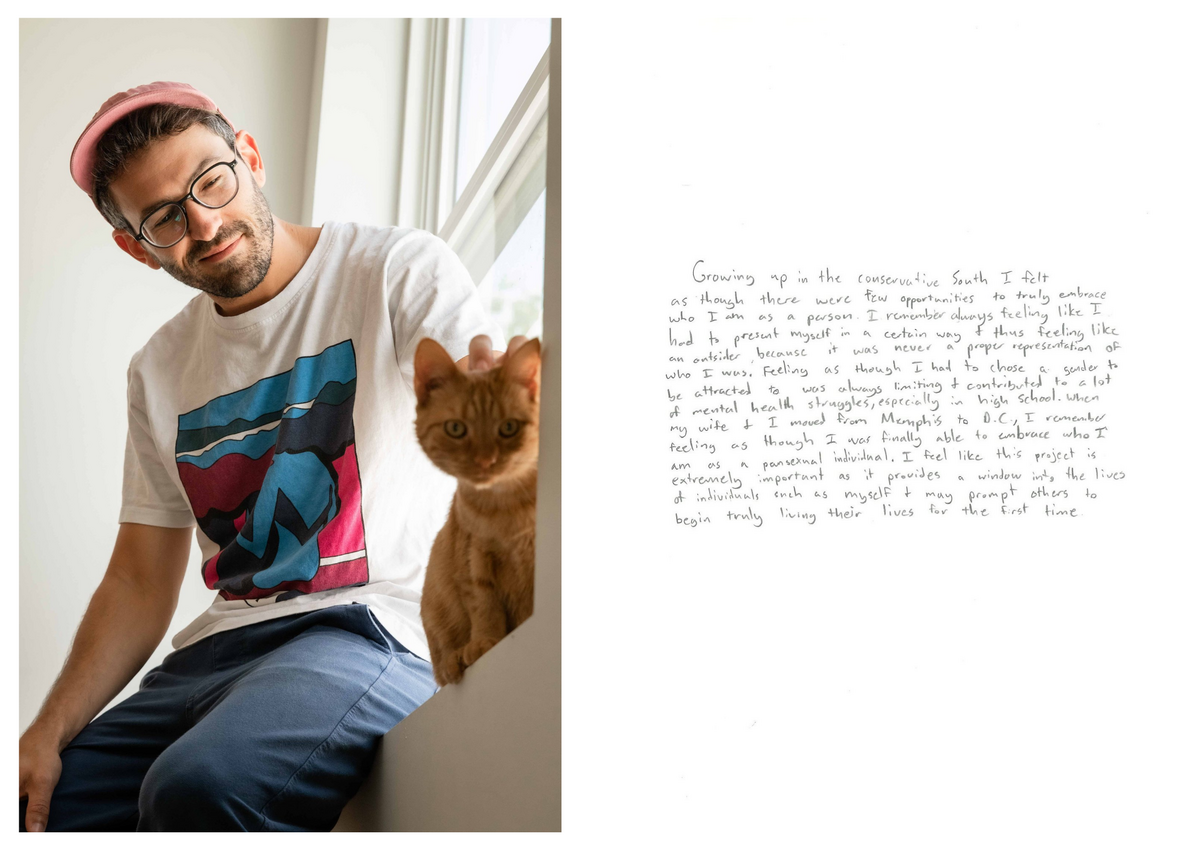 Growing up in the conservative South I felt
as though there were few opportunities to truly embrace
who I am as a person. I remember always feeling like I
had to present myself in a certain way & thus feeling like
an outsider, because it was never a proper representation of
who I was. Feeling as though I had to chose a gender to
be attracted to was always limiting & contributed to a lot
of mental health struggles, especially in high school. When
my wife & I moved from Memphis to D.C., I remember
feeling as though I was finally able to embrace who I
am as a pansexual individual. I feel like this project is
extremely important as it provides a window into the lives
of individuals such as myself & may prompt others to
begin truly living their lives for the first time.